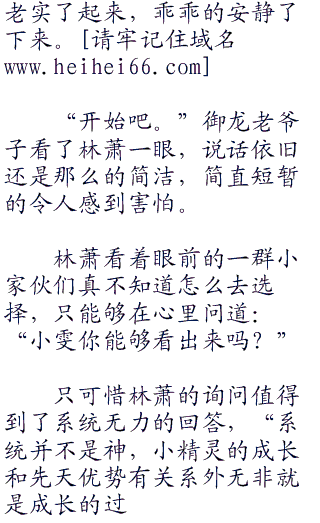 老实了起来，乖乖的安静了
下来。[请牢记住域名
www.heihei66.com]
“开始吧。”御龙老爷
子看了林萧一眼，说话依旧
还是那么的简洁，简直短暂
的令人感到害怕。
林萧看着眼前的一群小
家伙们真不知道怎么去选
择，只能够在心里问道：
“小雯你能够看出来吗？”
只可惜林萧的询问值得
到了系统无力的回答，“系
统并不是神，小精灵的成长
和先天优势有关系外无非就
是成长的过